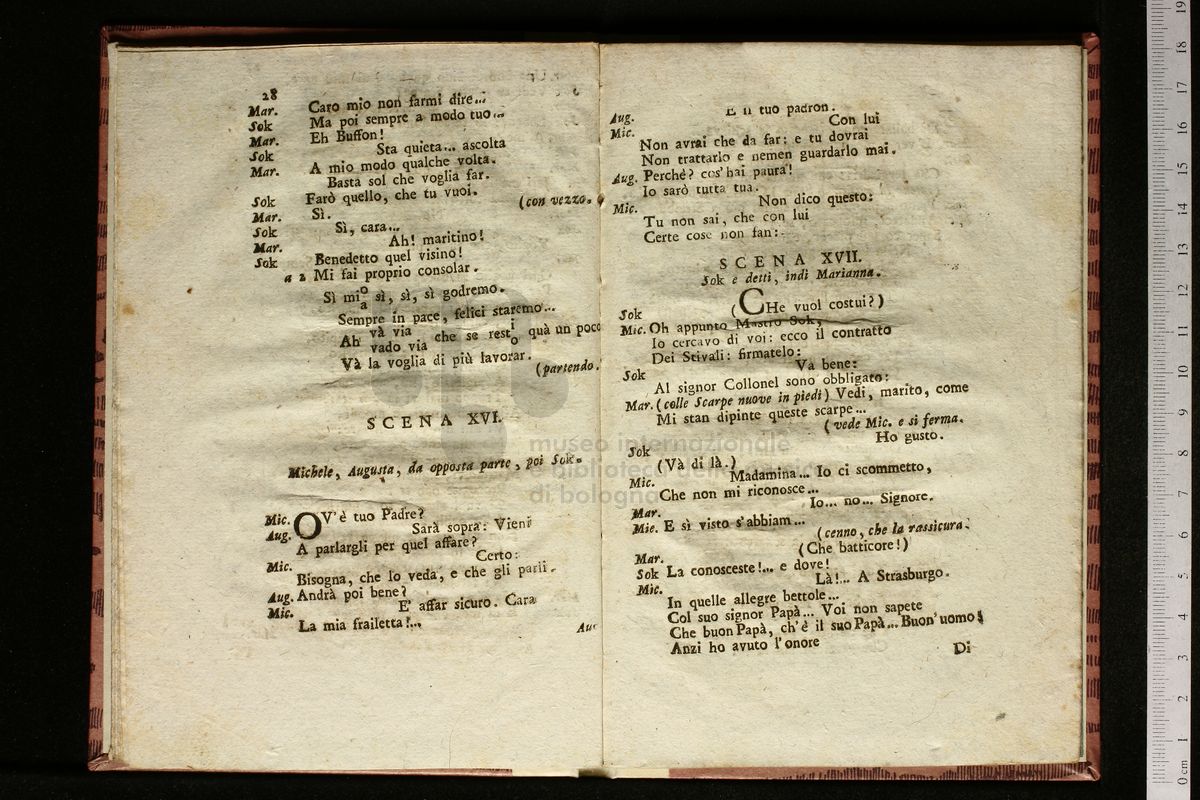 28
Mar. Caro mio non farmi dire...
Sok Ma poi sempre a modo tuo...
Mar. Eh Buffon!
Sok Sta quieta... ascolta
A mio modo qualche volta.
Mar. Basta sol che voglia far.
Sok Farò quello, che tu vuoi.
Mar. Sì. (con vezzo.
Sok Sì, cara...
Mar. Ah! maritino!
Sok Benedetto quel visino!
a 2 Mi fai proprio consolar.
Sì mio/a sì, sì, sì godremo.
Sempre in pace, felici staremo...
Ah và via / vado via che se resti/o quà un poco
Và la voglia di più lavorar.
(partendo.
SCENA XVI.
Michele, Augusta, da opposta parte, poi Sok.
Mic. OV'è tuo Padre?
Aug. Sarà sopra: Vieni
A parlargli per quel affare?
Mic. Certo:
Bisogna, che lo veda, e che gli parli.
Aug. Andrà poi bene?
Mic. E' affar sicuro. Cara
La mia frailetta!...
Aug. E il tuo padron.
Mic. Con lui
Non avrai che da far: e tu dovrai
Non trattarlo e nemen guardarlo mai.
Aug. Perché? cos'hai paura!
Io sarò tutta tua.
Mic. Non dico questo:
Tu non sai, che con lui
Certe cose non fan:
SCENA XVII.
Sok e detti, indi Marianna.
Sok (CHe vuol costui?)
Mic. Oh appunto Mastro Sok,
Io cercavo di voi: ecco il contratto
Dei Stivali: firmatelo:
Sok Va bene:
Al signor Collonel sono obbligato:
Mar. (colle Scarpe nuove in piedi) Vedi, marito, come
Mi stan dipinte queste scarpe...
(vede Mic. e si ferma.
Sok Ho gusto.
(Và di là.)
Mic. Madamina... Io ci scommetto,
Che non mi riconosce...
Mar. Io... no... Signore.
Mic. E sì visto s'abbiam...
(cenno, che la rassicura.
Mar. (Che batticore!)
Sok La conosceste!... e dove!
Mic. Là!... A Strasburgo.
In quelle allegre bettole...
Col suo signor Papà... Voi non sapete
Che buon Papà, ch'è il suo Papà... Buon'uomo!
Anzi ho avuto l'onore
Di
museo internazionale
e biblioteca della musica
di bologna